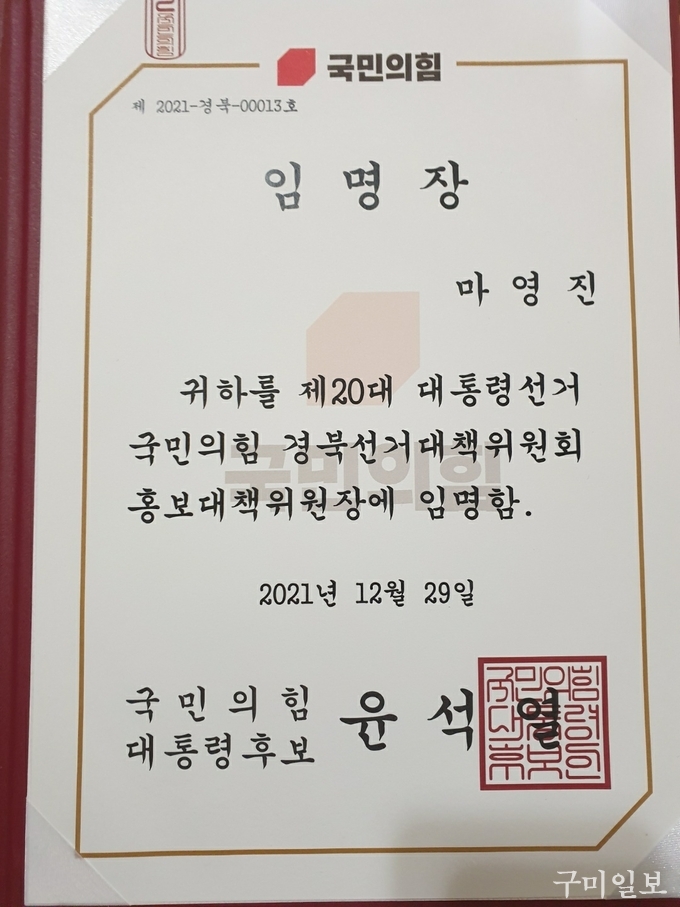 국민의힘
제 2021-경북-00013호
임 명 장
마 영 진
귀하를 제20대 대통령선거
국민의힘 경북선거대책위원회
홍보대책위원장에 임명함.
국민의힘
2021년 12월 29일
국 민 의 힘
대통령후보
윤 석 열
구미일보